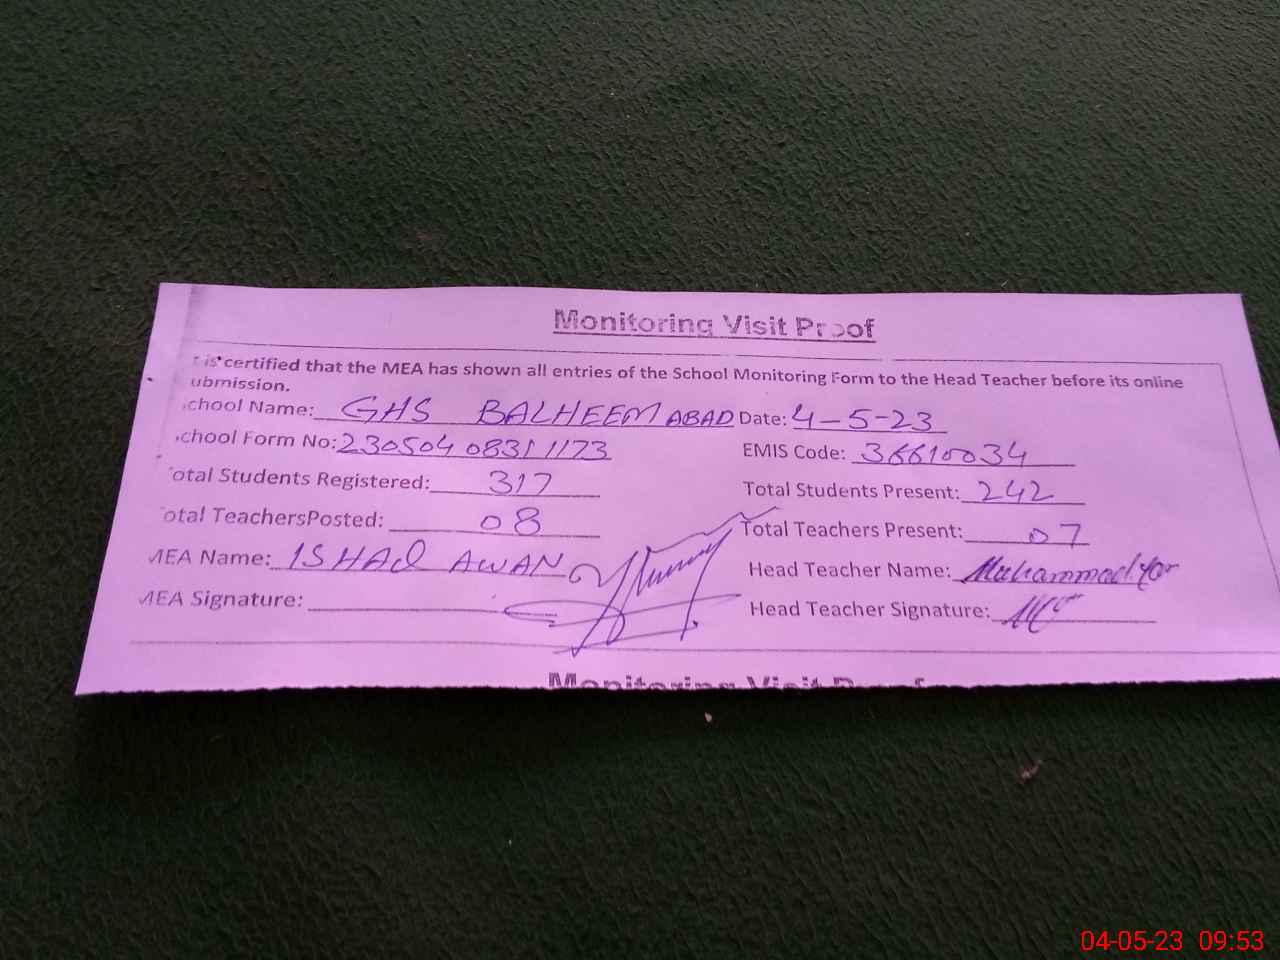 Monitoring Visit Proof
is certified that the MEA has shown all entries of the School Monitoring Form to the Head Teacher before its online
ubmission.
chool Name: GHS BALHEEM ABAD Date: 4-5-23
chool Form No: 230504 08311173 EMIS Code: 36610034
otal Students Registered: 317 Total Students Present: 242
otal TeachersPosted: 08 Total Teachers Present: 07
MEA Name: ISHAQ AWAN Head Teacher Name: Muhammad Yar
MEA Signature: Head Teacher Signature:
Monitoring Visit Proof
04-05-23 09:53